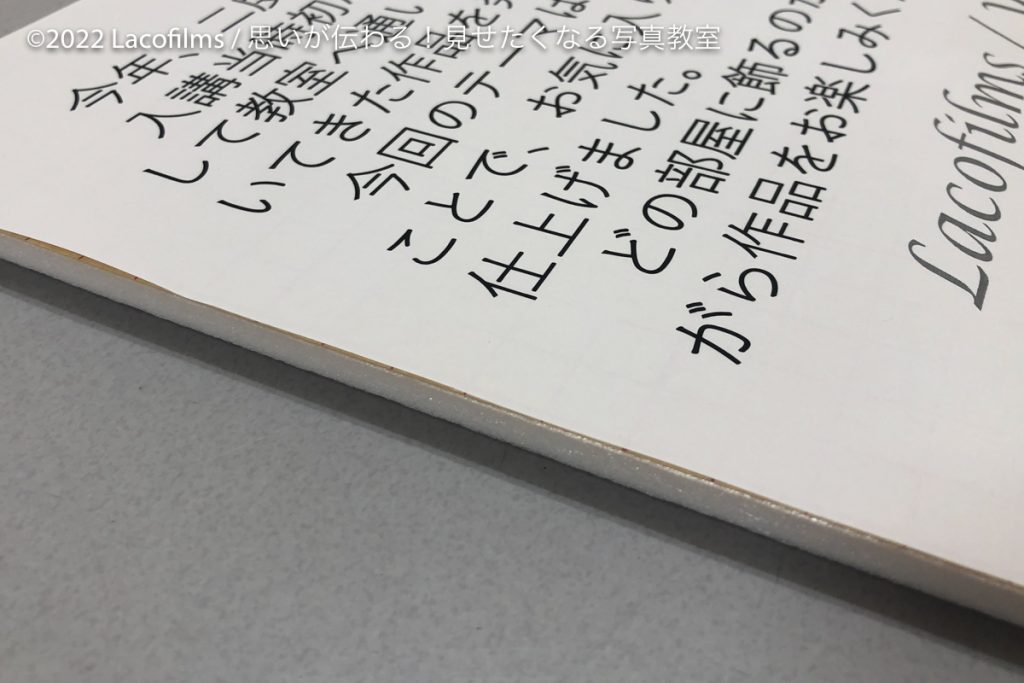 ©2022 Lacofilms / 思いが伝わる！見せたくなる写真教室
今年、二
入講当初
して教室へ通い
いてきた作品を
今回のテーマは
ことで、お気に
仕上げました。
どの部屋に飾るのか
がら作品をお楽しみく
Lacofilms /